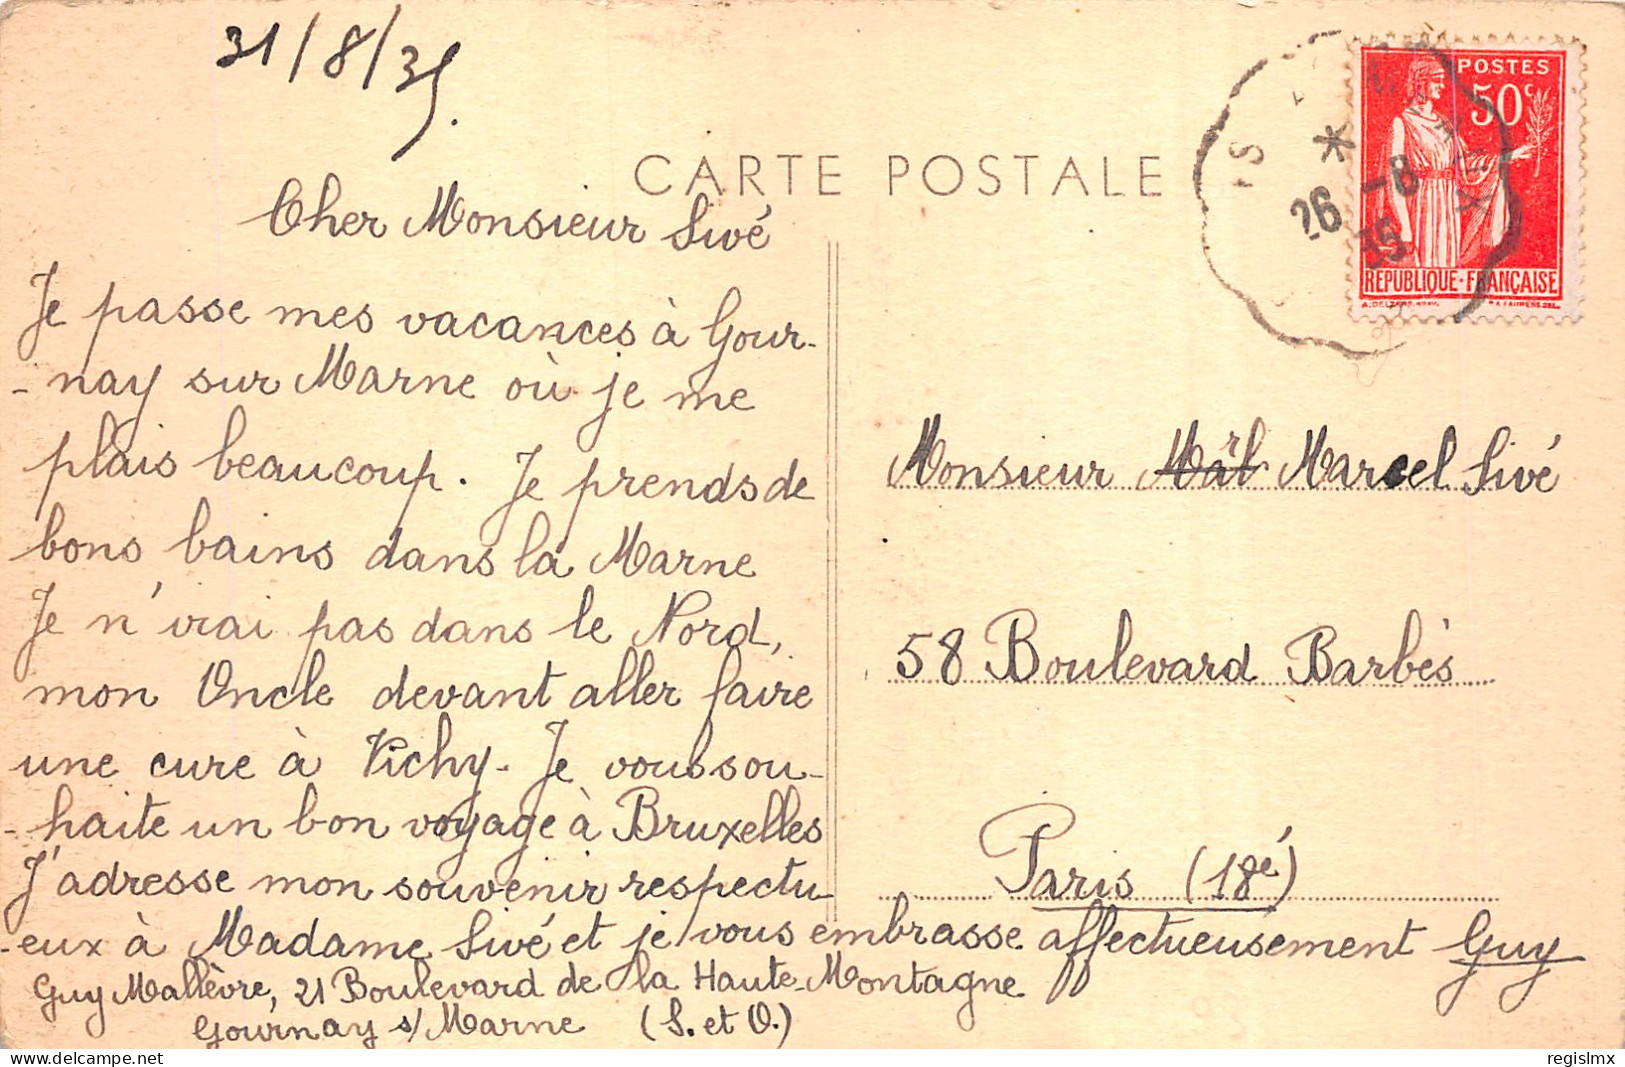 31/8/35.
CARTE POSTALE
POSTES
50c
RÉPUBLIQUE·FRANÇAISE
26 -8
35
Cher Monsieur Sivé
Je passe mes vacances à Gour-
-nay sur Marne où je me
plais beaucoup. Je prends de
bons bains dans la Marne
Je n'irai pas dans le Nord,
mon Oncle devant aller faire
une cure à Vichy. Je vous sou-
-haite un bon voyage à Bruxelles
J'adresse mon souvenir respectu-
-eux à Madame Sivé et je vous embrasse affectueusement Guy
Guy Mallèvre, 21 Boulevard de la Haute-Montagne
Gournay s/Marne (S. et O.)
Monsieur Marcel Sivé
58 Boulevard Barbès
Paris (18é)
regislmx